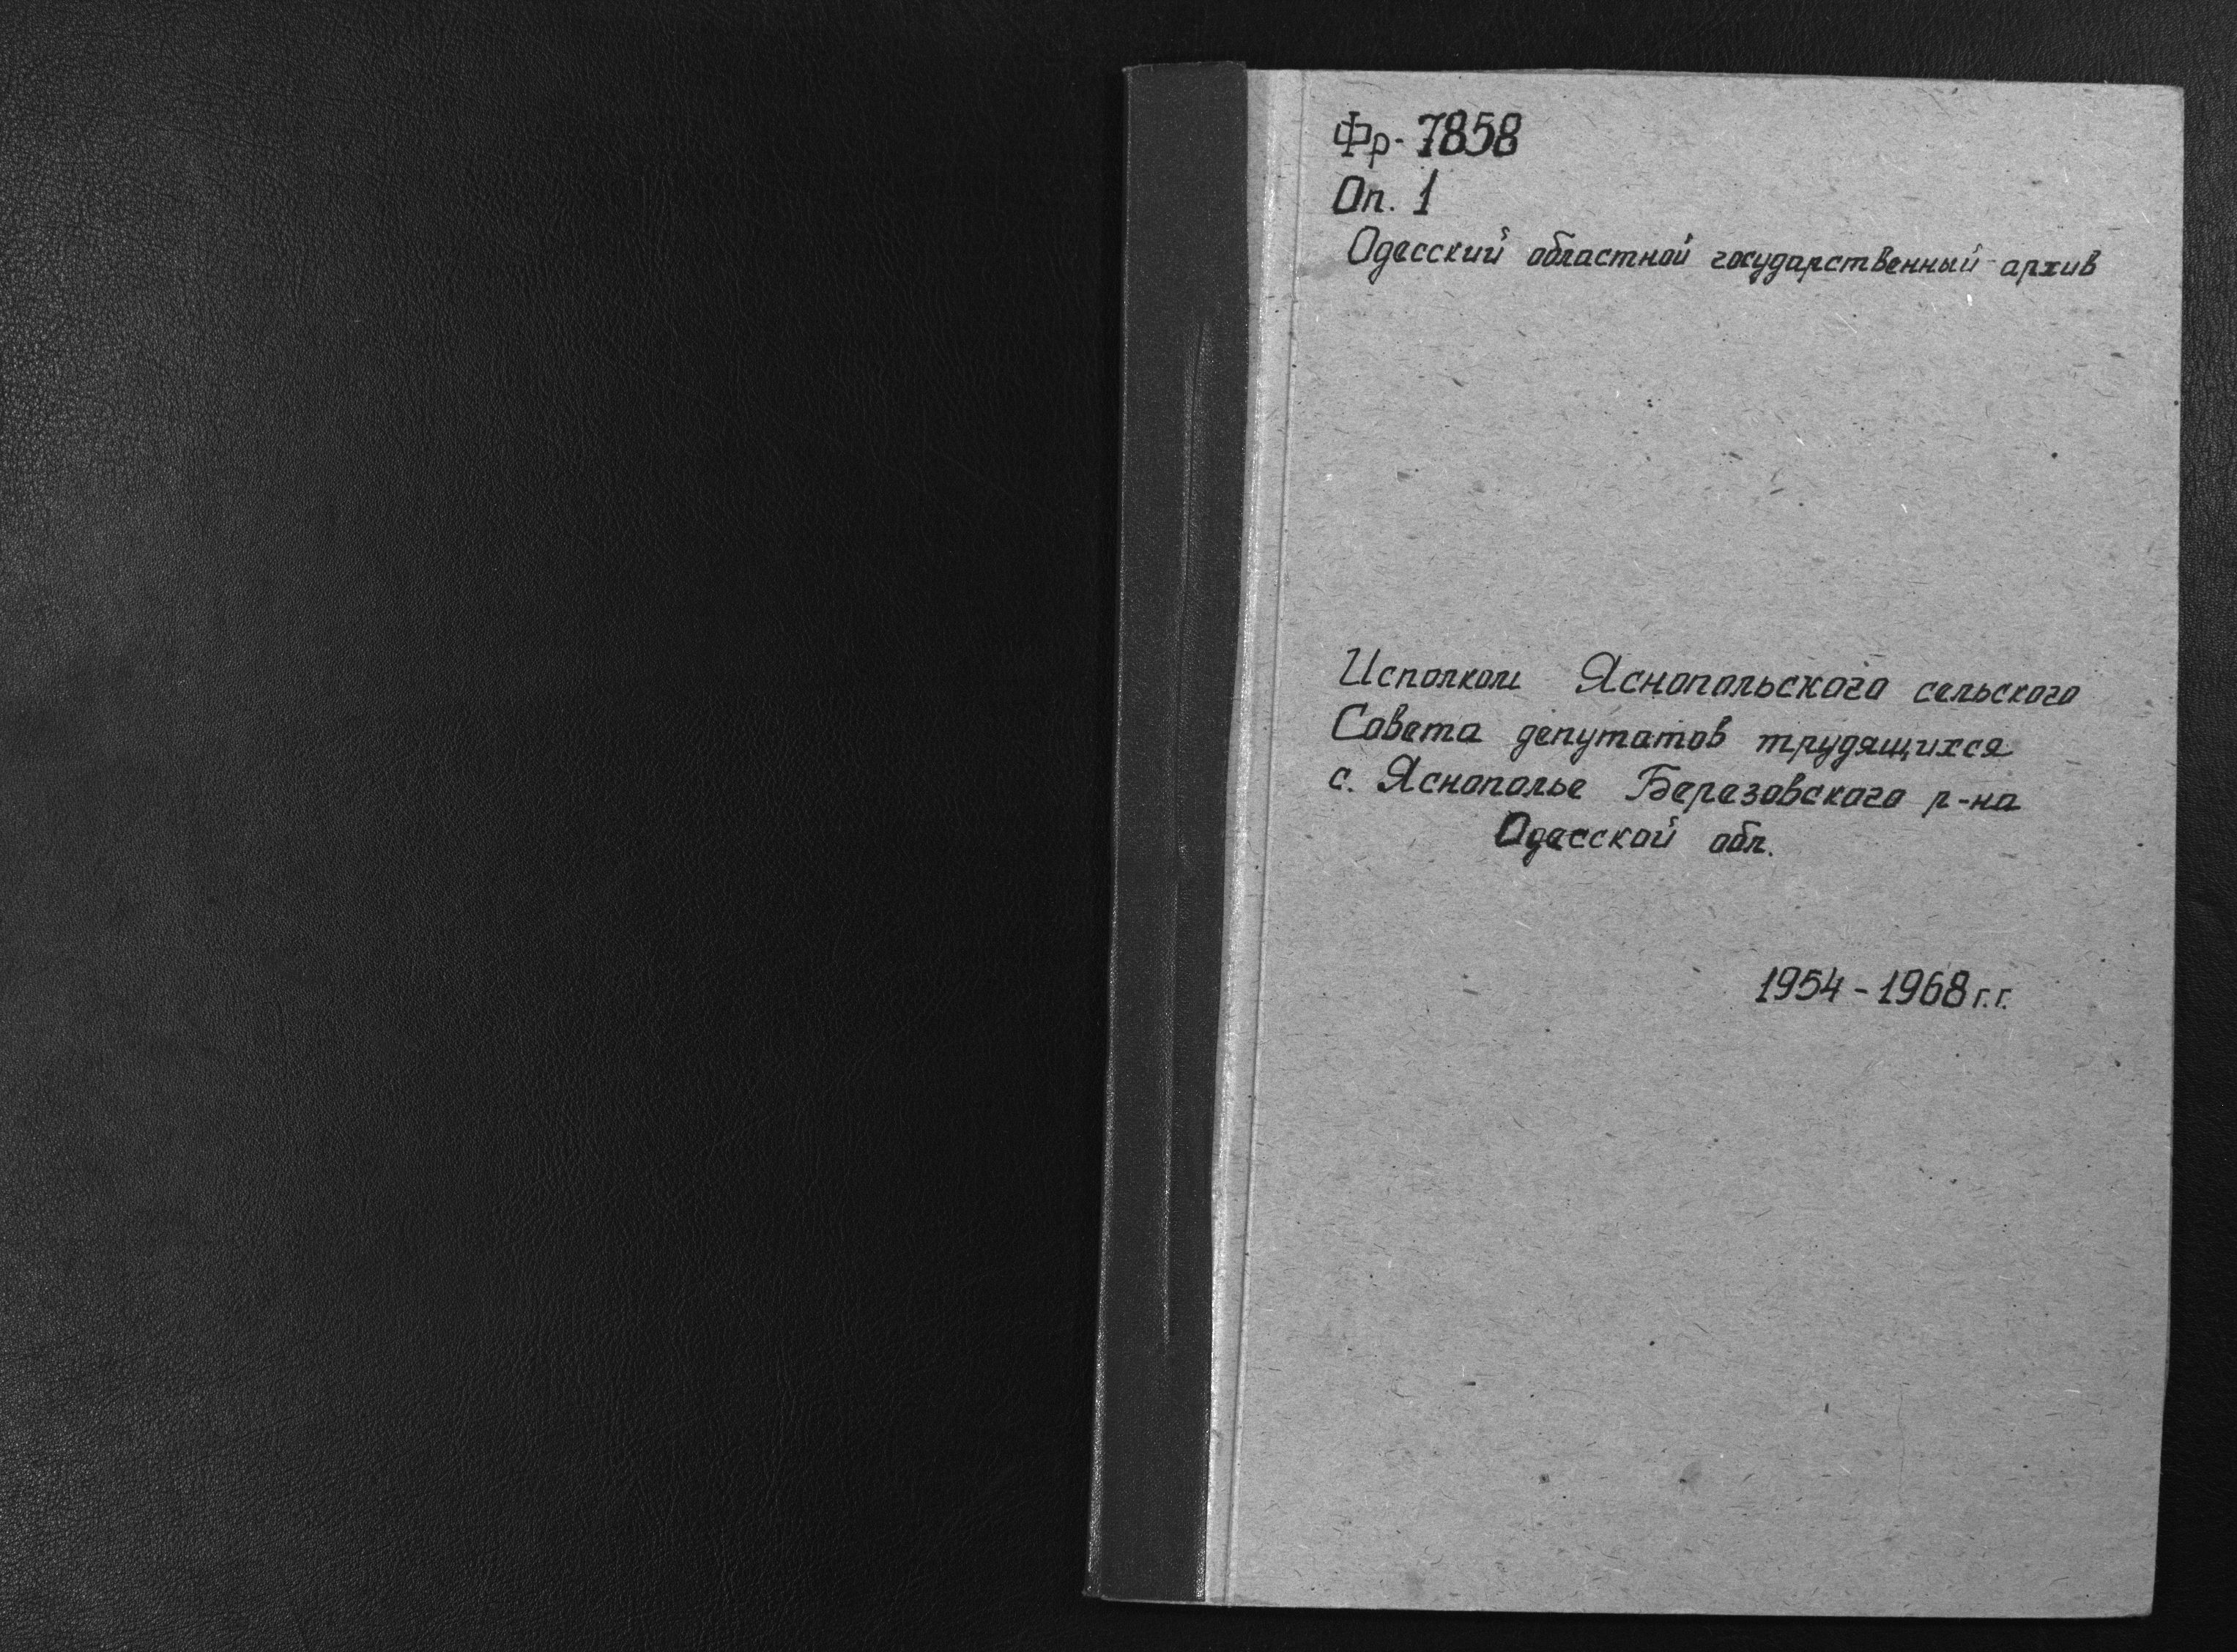 Фр-7858
Оп. 1
Одесский областной государственный архив
Исполком Яснопольского сельского
Совета депутатов трудящихся
с. Яснополье Березовского р-на
Одесской обл.
1954-1968 г.г.